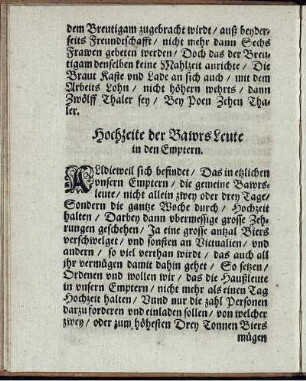 dem Breutigam zugebracht wirdt / auß beyder-
seits Freundtschafft / nicht mehr dann Sechs
Frawen gebeten werden / Doch das der Breu-
tigam denselben keine Mahlzeit anrichte / Die
Braut Kaste vnd Lade an sich auch / mit dem
Arbeits Lohn / nicht höhern wehrts / dann
Zwölff Thaler sey / Bey Poen Zehen Tha-
ler.
Hochzeite der Bawrs Leute
in den Emptern.
ALldieweil sich befindet / Das in etzlichen
vnsern Emptern / die gemeine Bawrs-
leute / nicht allein zwey oder drey Tage /
Sondern die gantze Woche durch / Hochzeit
halten / Darbey dann vbermessige grosse Zeh-
rungen geschehen / Ja eine grosse antzal Biers
verschwelget / vnd sonsten an Victualien / vnd
andern / so viel verthan wirdt / das auch all
ihr vermügen damit dahin gehet / So setzen /
Ordenen vnd wollen wir / das die Haußleute
in vnsern Emptern / nicht mehr als einen Tag
Hochzeit halten / Vnnd nur die zahl Personen
darzu forderen vnd einladen sollen / von welcher
zwey / oder zum höhesten Drey Tonnen Biers
mügen